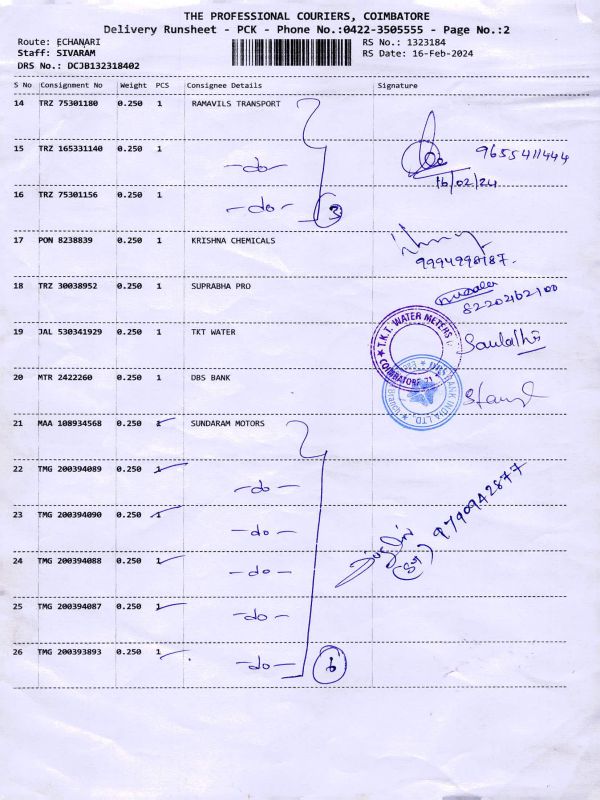 THE PROFESSIONAL COURIERS, COIMBATORE
Delivery Runsheet - PCK - Phone No.:0422-3505555 - Page No.:2
Route: ECHANARI RS No.: 1323184
Staff: SIVARAM RS Date: 16-Feb-2024
DRS No.: DCJB132318402
S No Consignment No Weight PCS Consignee Details Signature
14 TRZ 75301180 0.250 1 RAMAVILS TRANSPORT
15 TRZ 165331140 0.250 1 -do- 9655411444
16/02/24
16 TRZ 75301156 0.250 1 -do- 3
17 PON 8238839 0.250 1 KRISHNA CHEMICALS
18 TRZ 30038952 0.250 1 SUPRABHA PRO
8220462100
19 JAL 530341929 0.250 1 TKT WATER
T.K.T. WATER METERS
COIMBATORE
20 MTR 2422260 0.250 1 DBS BANK
BANK INDIA LTD.
21 MAA 108934568 0.250 1 SUNDARAM MOTORS
22 TMG 200394089 0.250 1 -do-
23 TMG 200394090 0.250 1 -do- 9790942877
24 TMG 200394088 0.250 1 -do-
25 TMG 200394087 0.250 1 -do-
26 TMG 200393893 0.250 1 -do- 6